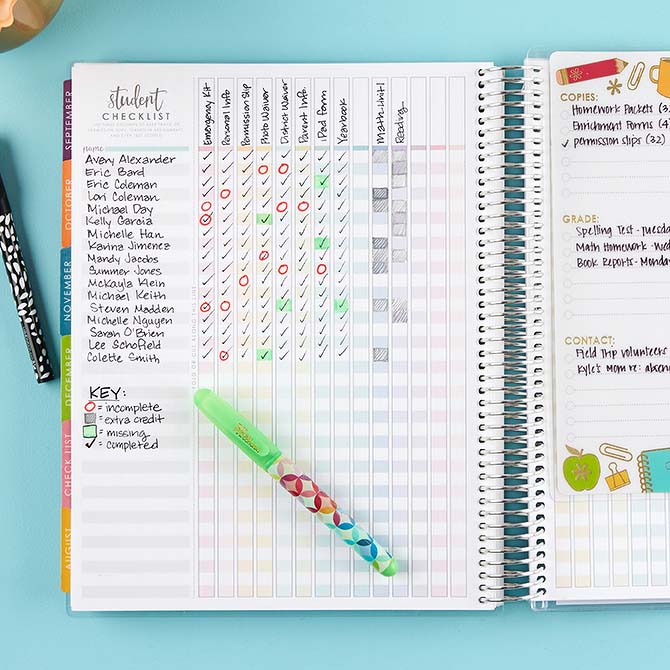 student
CHECKLIST
name
Emergency Kit
Personal Info
Permission Slip
Photo Waiver
District Waiver
Parent Info.
iPad form
Yearbook
Math-Unit 1
Reading
Avery Alexander
Eric Bard
Eric Coleman
Lori Coleman
Michael Day
Kelly Garcia
Michelle Han
Karina Jimenez
Mandy Jacobs
Summer Jones
McKayla Klein
Michael Keith
Steven Madden
Michelle Nguyen
Sarah O'Brien
Lee Schofield
Colette Smith
KEY:
= incomplete
= extra credit
= missing
= completed
FOLD OR CUT ALONG THIS LINE
SEPTEMBER
OCTOBER
NOVEMBER
DECEMBER
CHECK LIST
AUGUST
COPIES:
Homework Packets (3
Enrichment Forms (4
permission slips (32)
GRADE:
Spelling Test - Tuesda
Math Homework - Wed
Book Reports - Monda
CONTACT:
Field Trip volunteers
Kyle's Mom re: absen